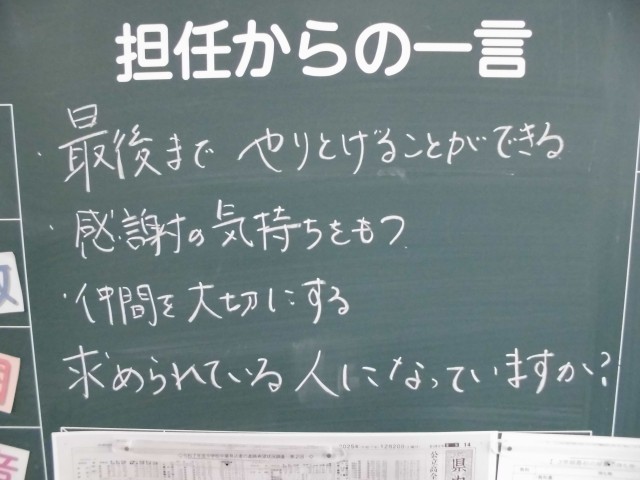 担任からの一言
・最後まで やりとげることができる
・感謝の気持ちをもつ
・仲間を大切にする
求められている人になっていますか?